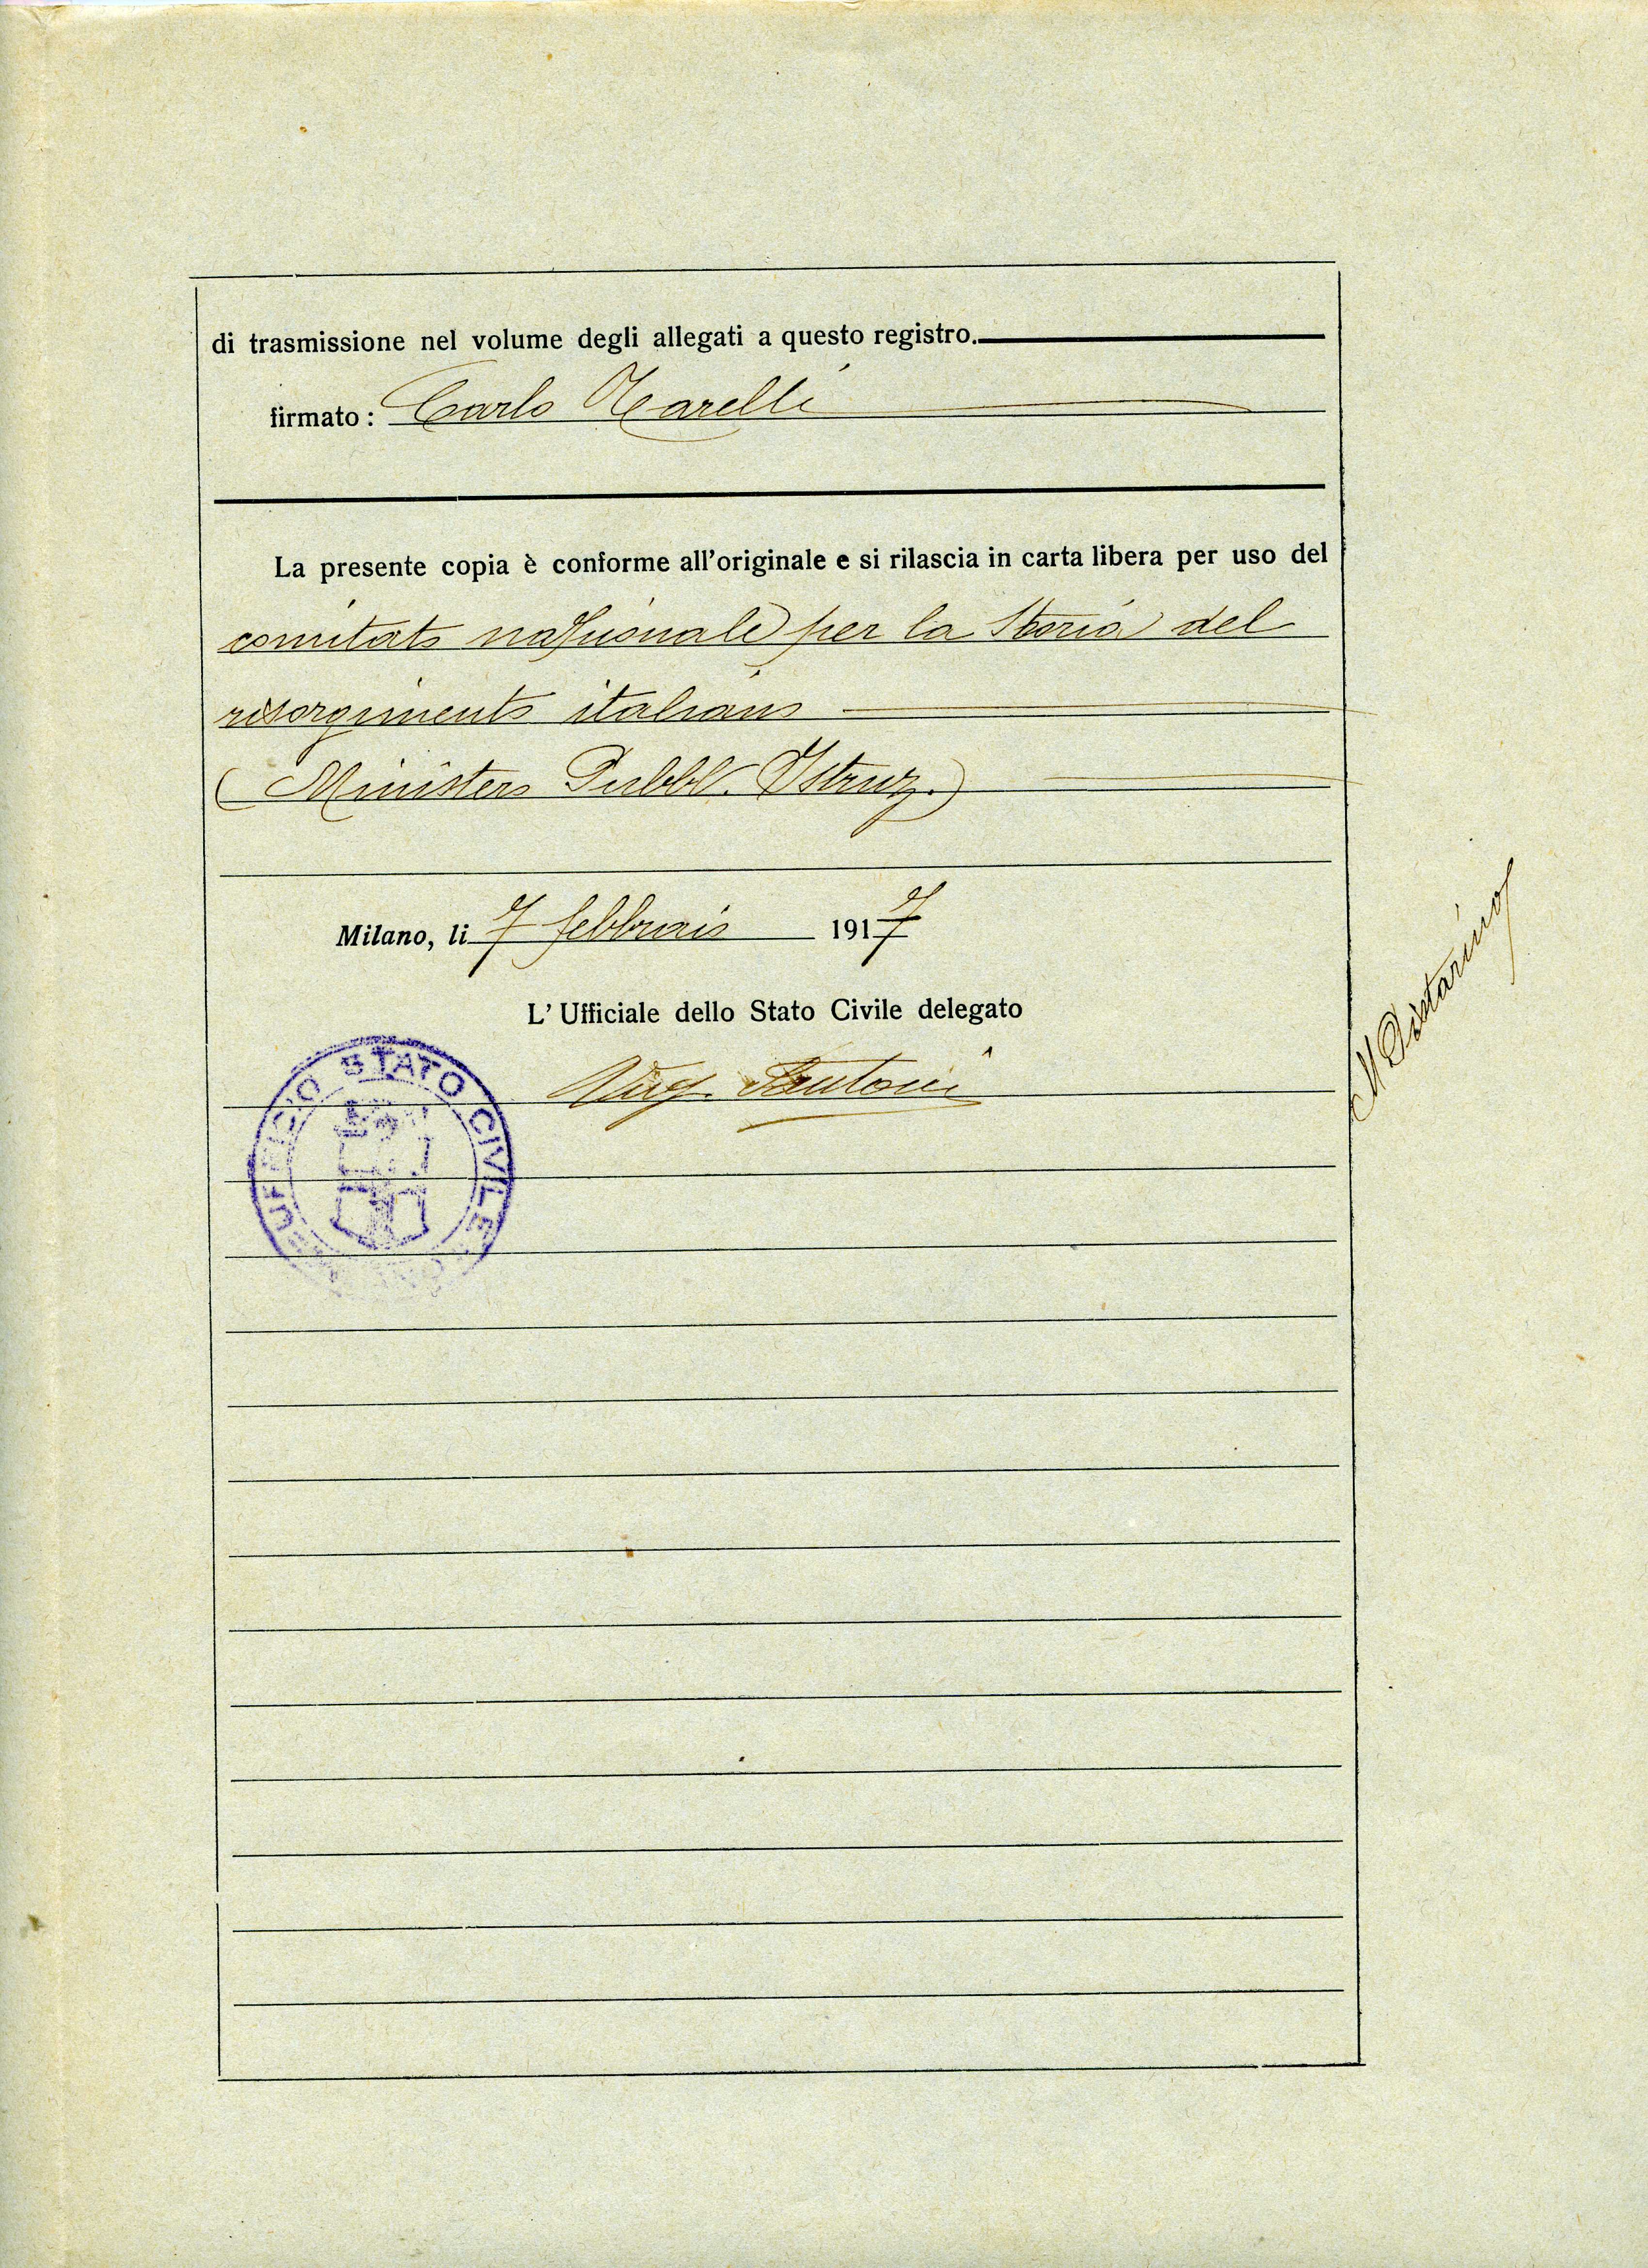 di trasmissione nel volume degli allegati a questo registro.
firmato: Carlo Marelli
La presente copia è conforme all'originale e si rilascia in carta libera per uso del
comitato nazionale per la Storia del
risorgimento italiano
(Ministero Pubbl. Istruz.)
Milano, li 7 febbraio 1917
L'Ufficiale dello Stato Civile delegato
UFFICIO STATO CIVILE